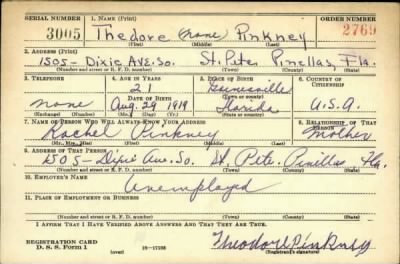 SERIAL NUMBER 1. NAME (Print) ORDER NUMBER
3005 Thedore (none) Pinkney 2769
(First) (Middle) (Last)
2. ADDRESS (Print)
1505- Dixie Ave. So. St. Pete Pinellas, Fla.
(Number and street or R. F. D. number) (Town) (County) (State)
3. TELEPHONE 4. AGE IN YEARS 5. PLACE OF BIRTH 6. COUNTRY OF CITIZENSHIP
21 Gainesville
DATE OF BIRTH (Town or county)
none Aug. 29 1919 Florida U.S.A.
(Exchange) (Number) (Mo.) (Day) (Yr.) (State or country)
7. NAME OF PERSON WHO WILL ALWAYS KNOW YOUR ADDRESS 8. RELATIONSHIP OF THAT PERSON
Rachel Pinkney Mother
(Mr., Mrs., Miss) (First) (Middle) (Last)
9. ADDRESS OF THAT PERSON
1505- Dixie Ave. So. St. Pete. Pinellas Fla.
(Number and street or R. F. D. number) (Town) (County) (State)
10. EMPLOYER'S NAME
Unemployed
11. PLACE OF EMPLOYMENT OR BUSINESS
(Number and street or R. F. D. number) (Town) (County) (State)
I AFFIRM THAT I HAVE VERIFIED ABOVE ANSWERS AND THAT THEY ARE TRUE.
REGISTRATION CARD
D. S. S. Form 1 (over) Theodore Pinkney
(Registrant's signature)